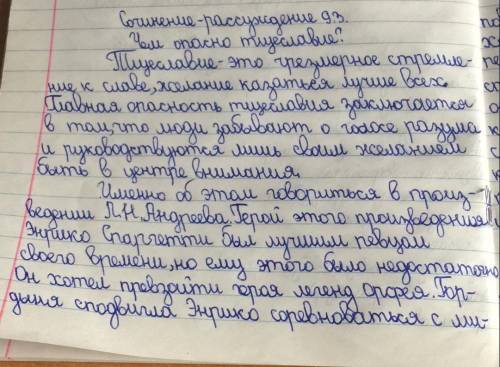 Сочинение-рассуждение 9.3.
Чем опасно тщеславие?
Тщеславие-это чрезмерное стремле-
ние к славе, желание казаться лучше всех.
Главная опасность тщеславия заключается
в том, что люди забывают о голосе разума
и руководствуются лишь своим желанием
быть в центре внимания.
Именно об этом говориться в произ-
ведении Л.Н.Андреева. Герой этого произведения
Энрико Спаргетти был лучшим певцом
своего времени, но ему этого было недостаточно.
Он хотел превзойти героя легенд Орфея. Гор-
дыня сподвигла Энрико соревноваться с ми-